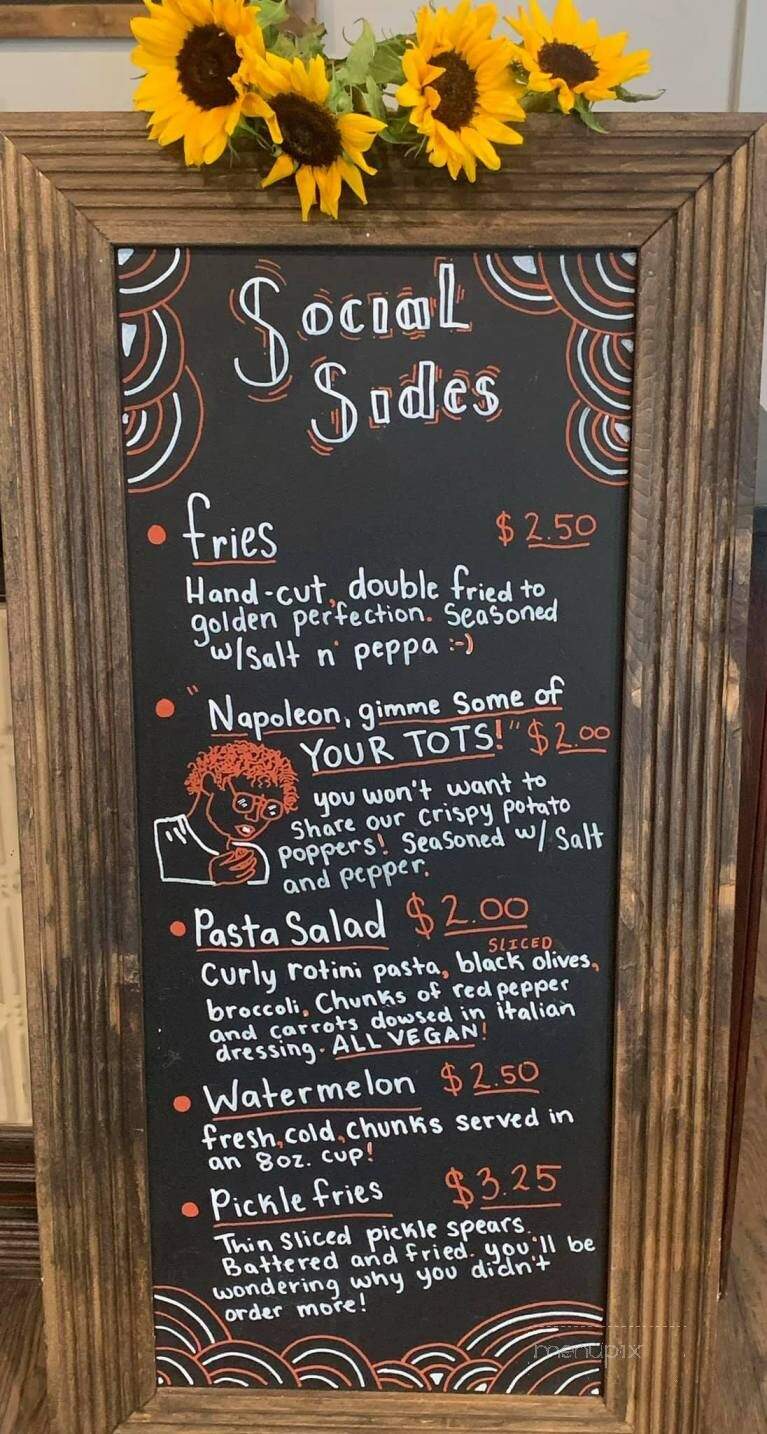 Social
Sides
fries $2.50
Hand-cut, double fried to
golden perfection. Seasoned
w/Salt n' peppa :-)
"Napoleon, gimme some of
YOUR TOTS!" $2.00
you won't want to
share our crispy potato
poppers! Seasoned w/ Salt
and pepper.
Pasta Salad $2.00
SLICED
Curly rotini pasta, black olives,
broccoli, Chunks of red pepper
and carrots dowsed in italian
dressing. ALL VEGAN!
Watermelon $2.50
fresh, cold, chunks served in
an 8oz. cup!
Pickle fries $3.25
Thin sliced pickle spears.
Battered and fried. you'll be
wondering why you didn't
order more!
menupix